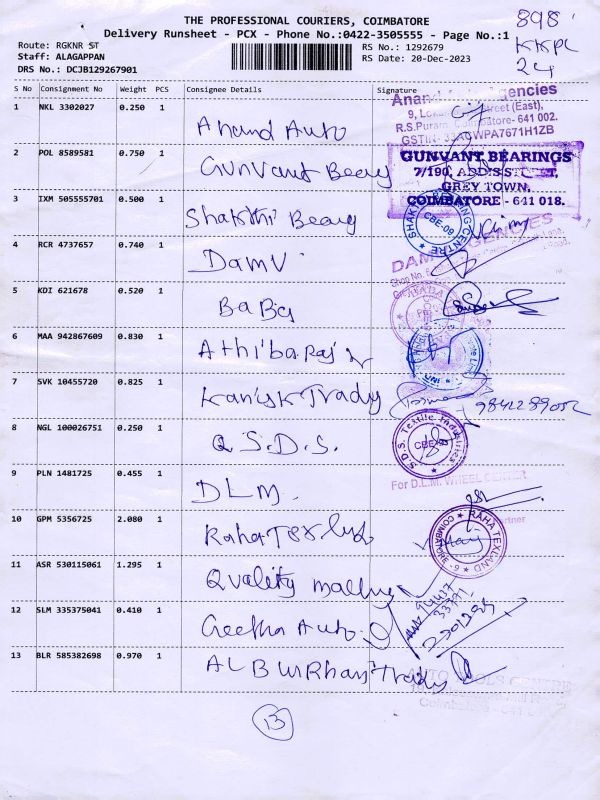 THE PROFESSIONAL COURIERS, COIMBATORE
Delivery Runsheet - PCX - Phone No.:0422-3505555 - Page No.:1
898
KKPL
24
Route: RGKNR ST
RS No.: 1292679
Staff: ALAGAPPAN
RS Date: 20-Dec-2023
DRS No.: DCJB129267901
S No Consignment No Weight PCS Consignee Details Signature
1 NKL 3302027 0.250 1 Anand Auto
Anand Agencies
Street (East),
R.S.Puram, Coimbatore- 641 002.
2 POL 8589581 0.750 1 Gunvant Beary
GUNVANT BEARINGS
7/190, ADDIS STREET,
GREY TOWN,
COIMBATORE - 641 018.
3 IXM 505555701 0.500 1 Shakthi Beary
CBE-09
4 RCR 4737657 0.740 1 Damu
5 KDI 621678 0.520 1 BaBa
6 MAA 942867609 0.830 1 Athibaraj
7 SVK 10455720 0.825 1 Kanisk Trady
8 NGL 100026751 0.250 1 Q S.D.S.
S.D.S. Textile Industries
9 PLN 1481725 0.455 1 DLM.
For D.L.M. WHEEL CENTER
Partner
10 GPM 5356725 2.080 1 Raha Tex
RAHA TEXLAND
COIMBATORE - 9
11 ASR 530115061 1.295 1 Quality
12 SLM 335375041 0.410 1 Geetha Auto
13 BLR 585382698 0.970 1 Trady
AUTO TOOLS CENTRE
Coimbatore - 641
13